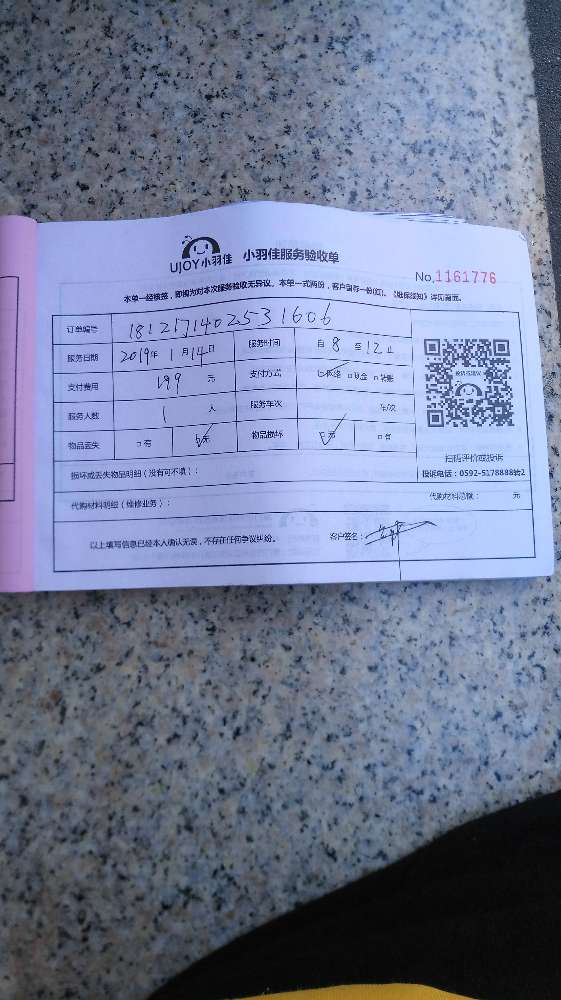 UJOY小羽佳 小羽佳服务验收单
No,1161776
本单一经核签，即视为对本次服务验收无异议。本单一式两份，客户留存一份(红)。《耻保须知》详见背面。
订单编号 1812171402531606
服务日期 2019年 1月14日 服务时间 自 8 至 12 止
支付费用 199 元 支付方式 ☑网络 □现金 □转账
服务人数 1 人 服务车次 车/次
物品丢失 □有 ☑无 物品损坏 ☑无 □有
扫码评价或投诉
投诉电话：0592-5178888转2
损坏或丢失物品明细（没有可不填）：
代购材料明细（维修业务）： 代购材料总额： 元
以上填写信息已经本人确认无误，不存在任何争议纠纷。 客户签名：